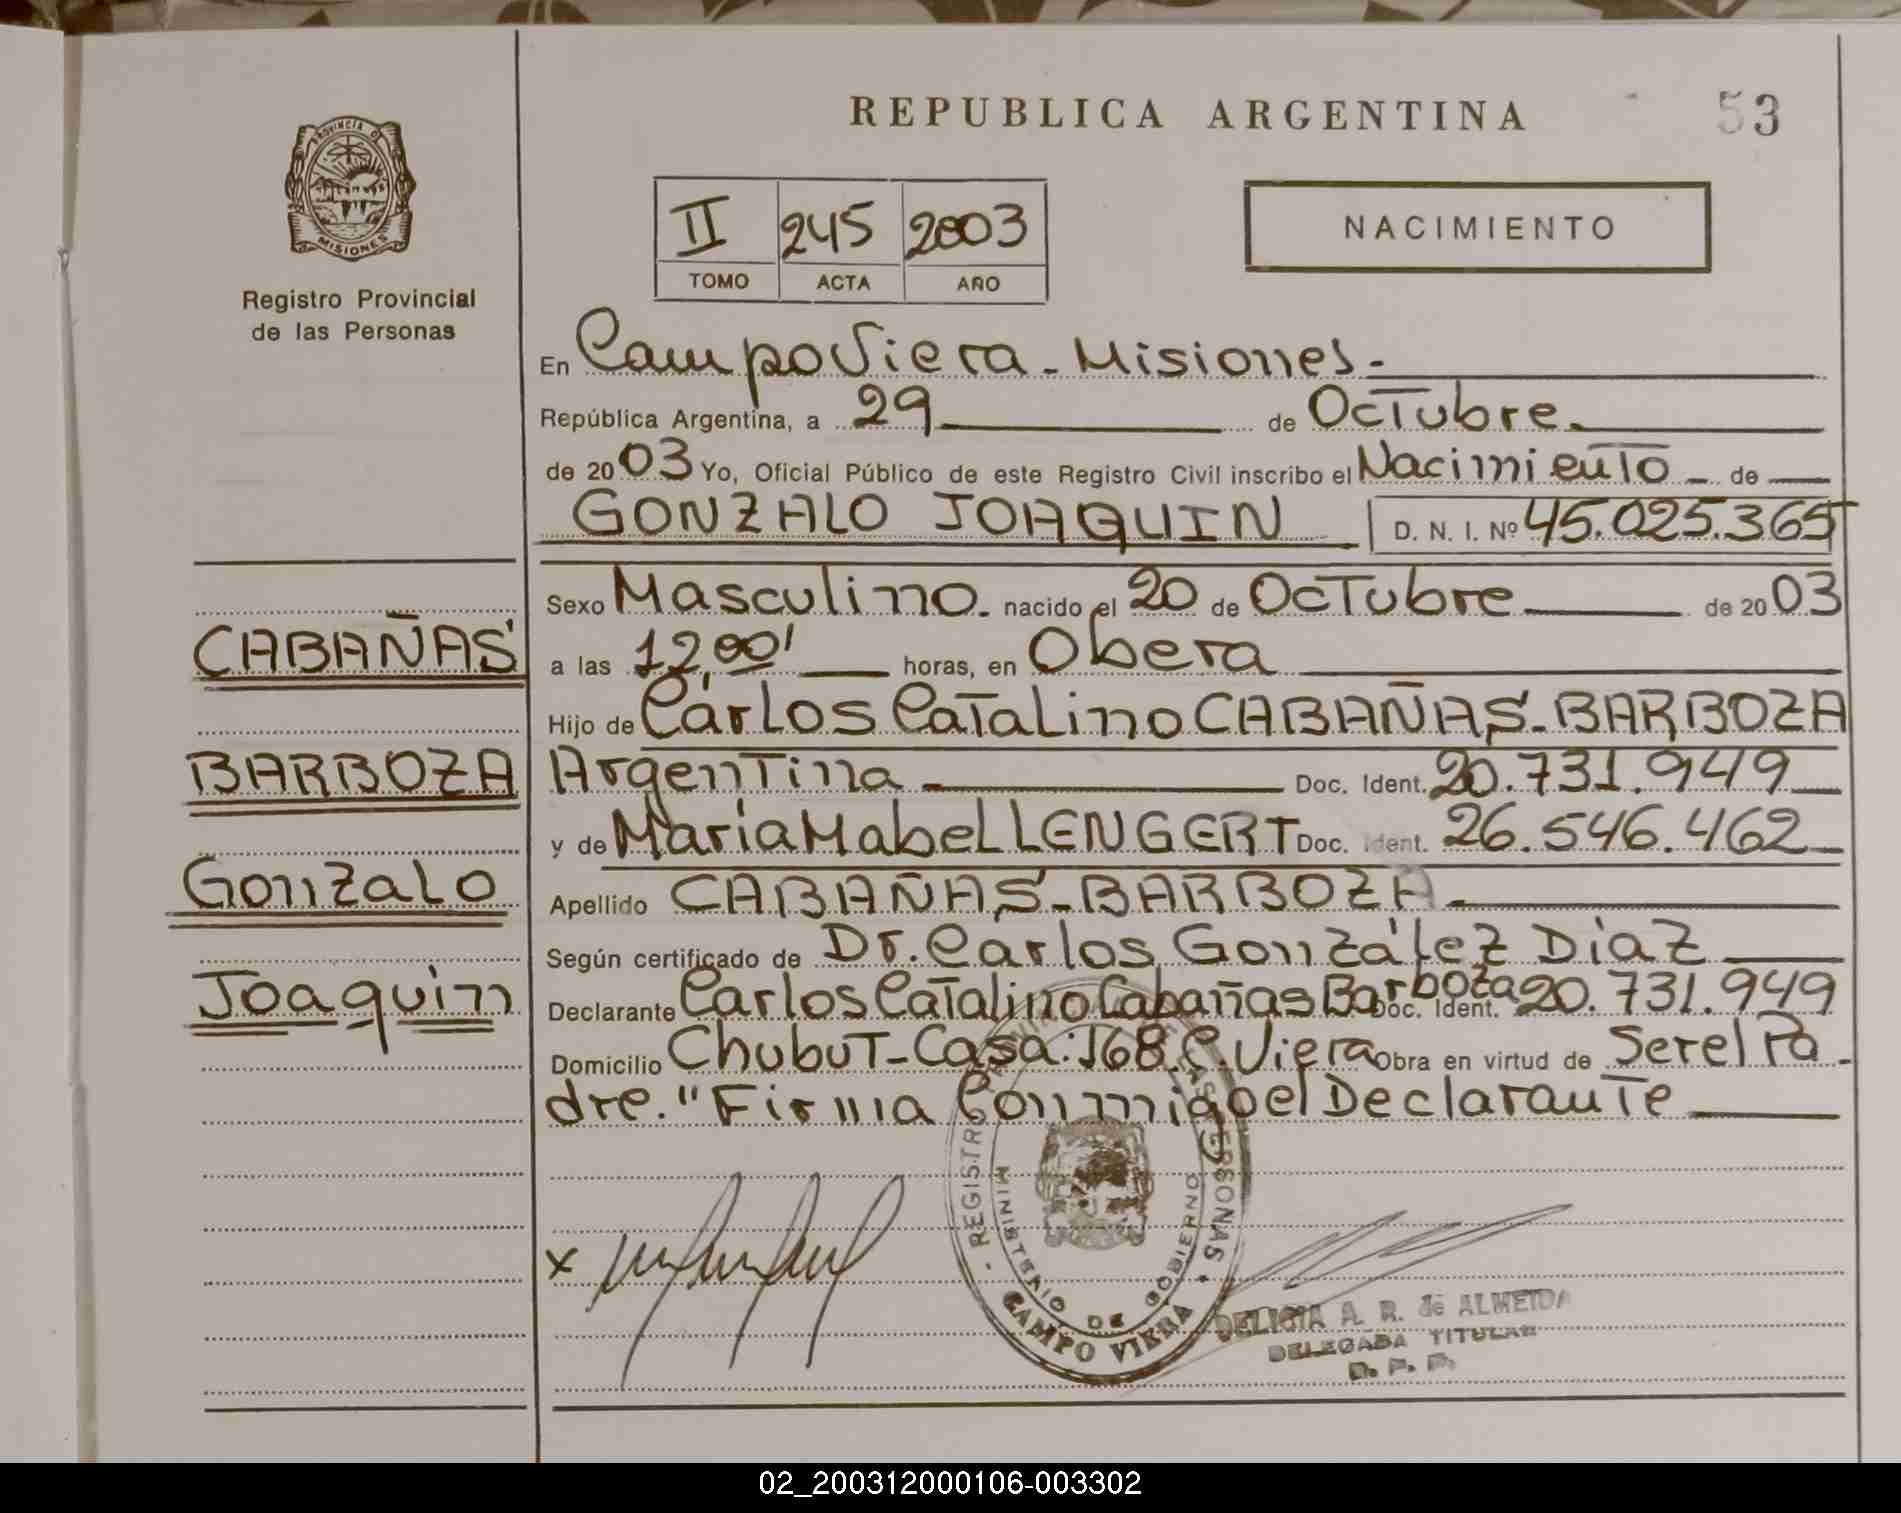 REPUBLICA ARGENTINA
53
PROVINCIA DE
MISIONES
Registro Provincial
de las Personas
II 245 2003
TOMO ACTA AÑO
NACIMIENTO
En Campo Viera - Misiones -
República Argentina, a 29 de Octubre.
de 2003 Yo, Oficial Público de este Registro Civil inscribo el Nacimiento - de
GONZALO JOAQUIN D. N. I. Nº 45.025.365
Sexo Masculino. nacido el 20 de Octubre de 2003
a las 12,00' horas, en Obera
Hijo de Carlos Catalino CABAÑAS-BARBOZA
Argentina Doc. Ident. 20.731.949
y de María Mabel LENGERT Doc. Ident. 26.546.462
Apellido CABAÑAS-BARBOZA
Según certificado de Dr. Carlos González Diaz
Declarante Carlos Catalino Cabañas Barboza Doc. Ident. 20.731.949
Domicilio Chubut-Casa:168.C.Viera Obra en virtud de Ser el Pa-
dre. "Firma Conmigo el Declarante
CABAÑAS
BARBOZA
Gonzalo
Joaquin
x
REGISTRO PROVINCIAL DE LAS PERSONAS
MINISTERIO DE GOBIERNO
CAMPO VIERA
DELICIA A. R. de ALMEIDA
DELEGADA TITULAR
R. P. P.
02_200312000106-003302